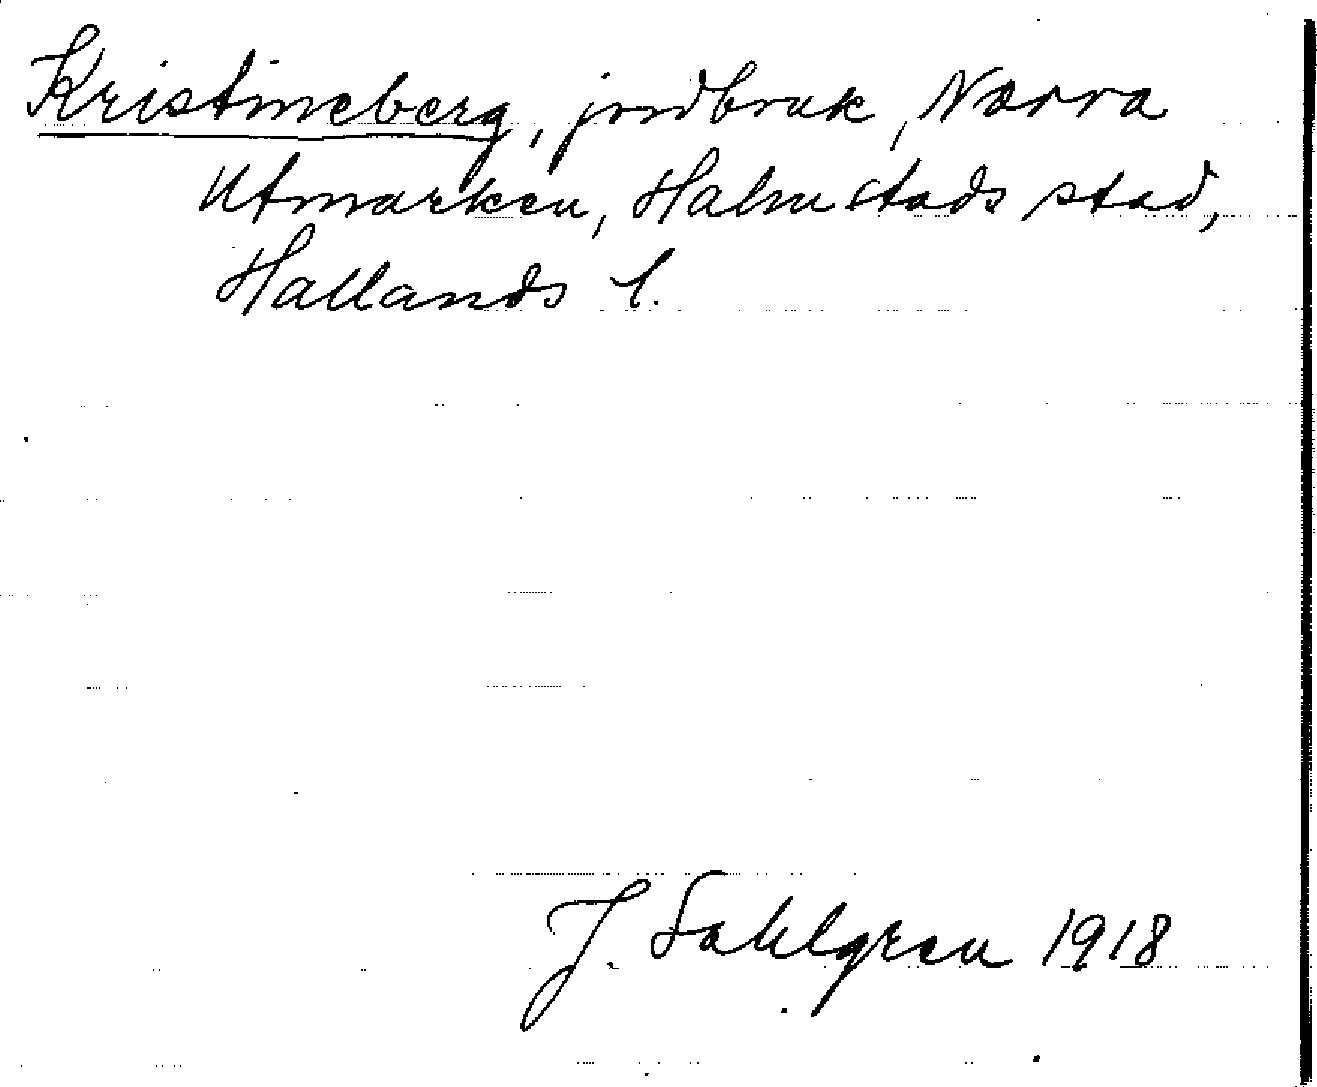 Kristineberg, jordbruk, Norra
Utmarken, Halmstads stad,
Hallands l.
J. Sahlgren 1918